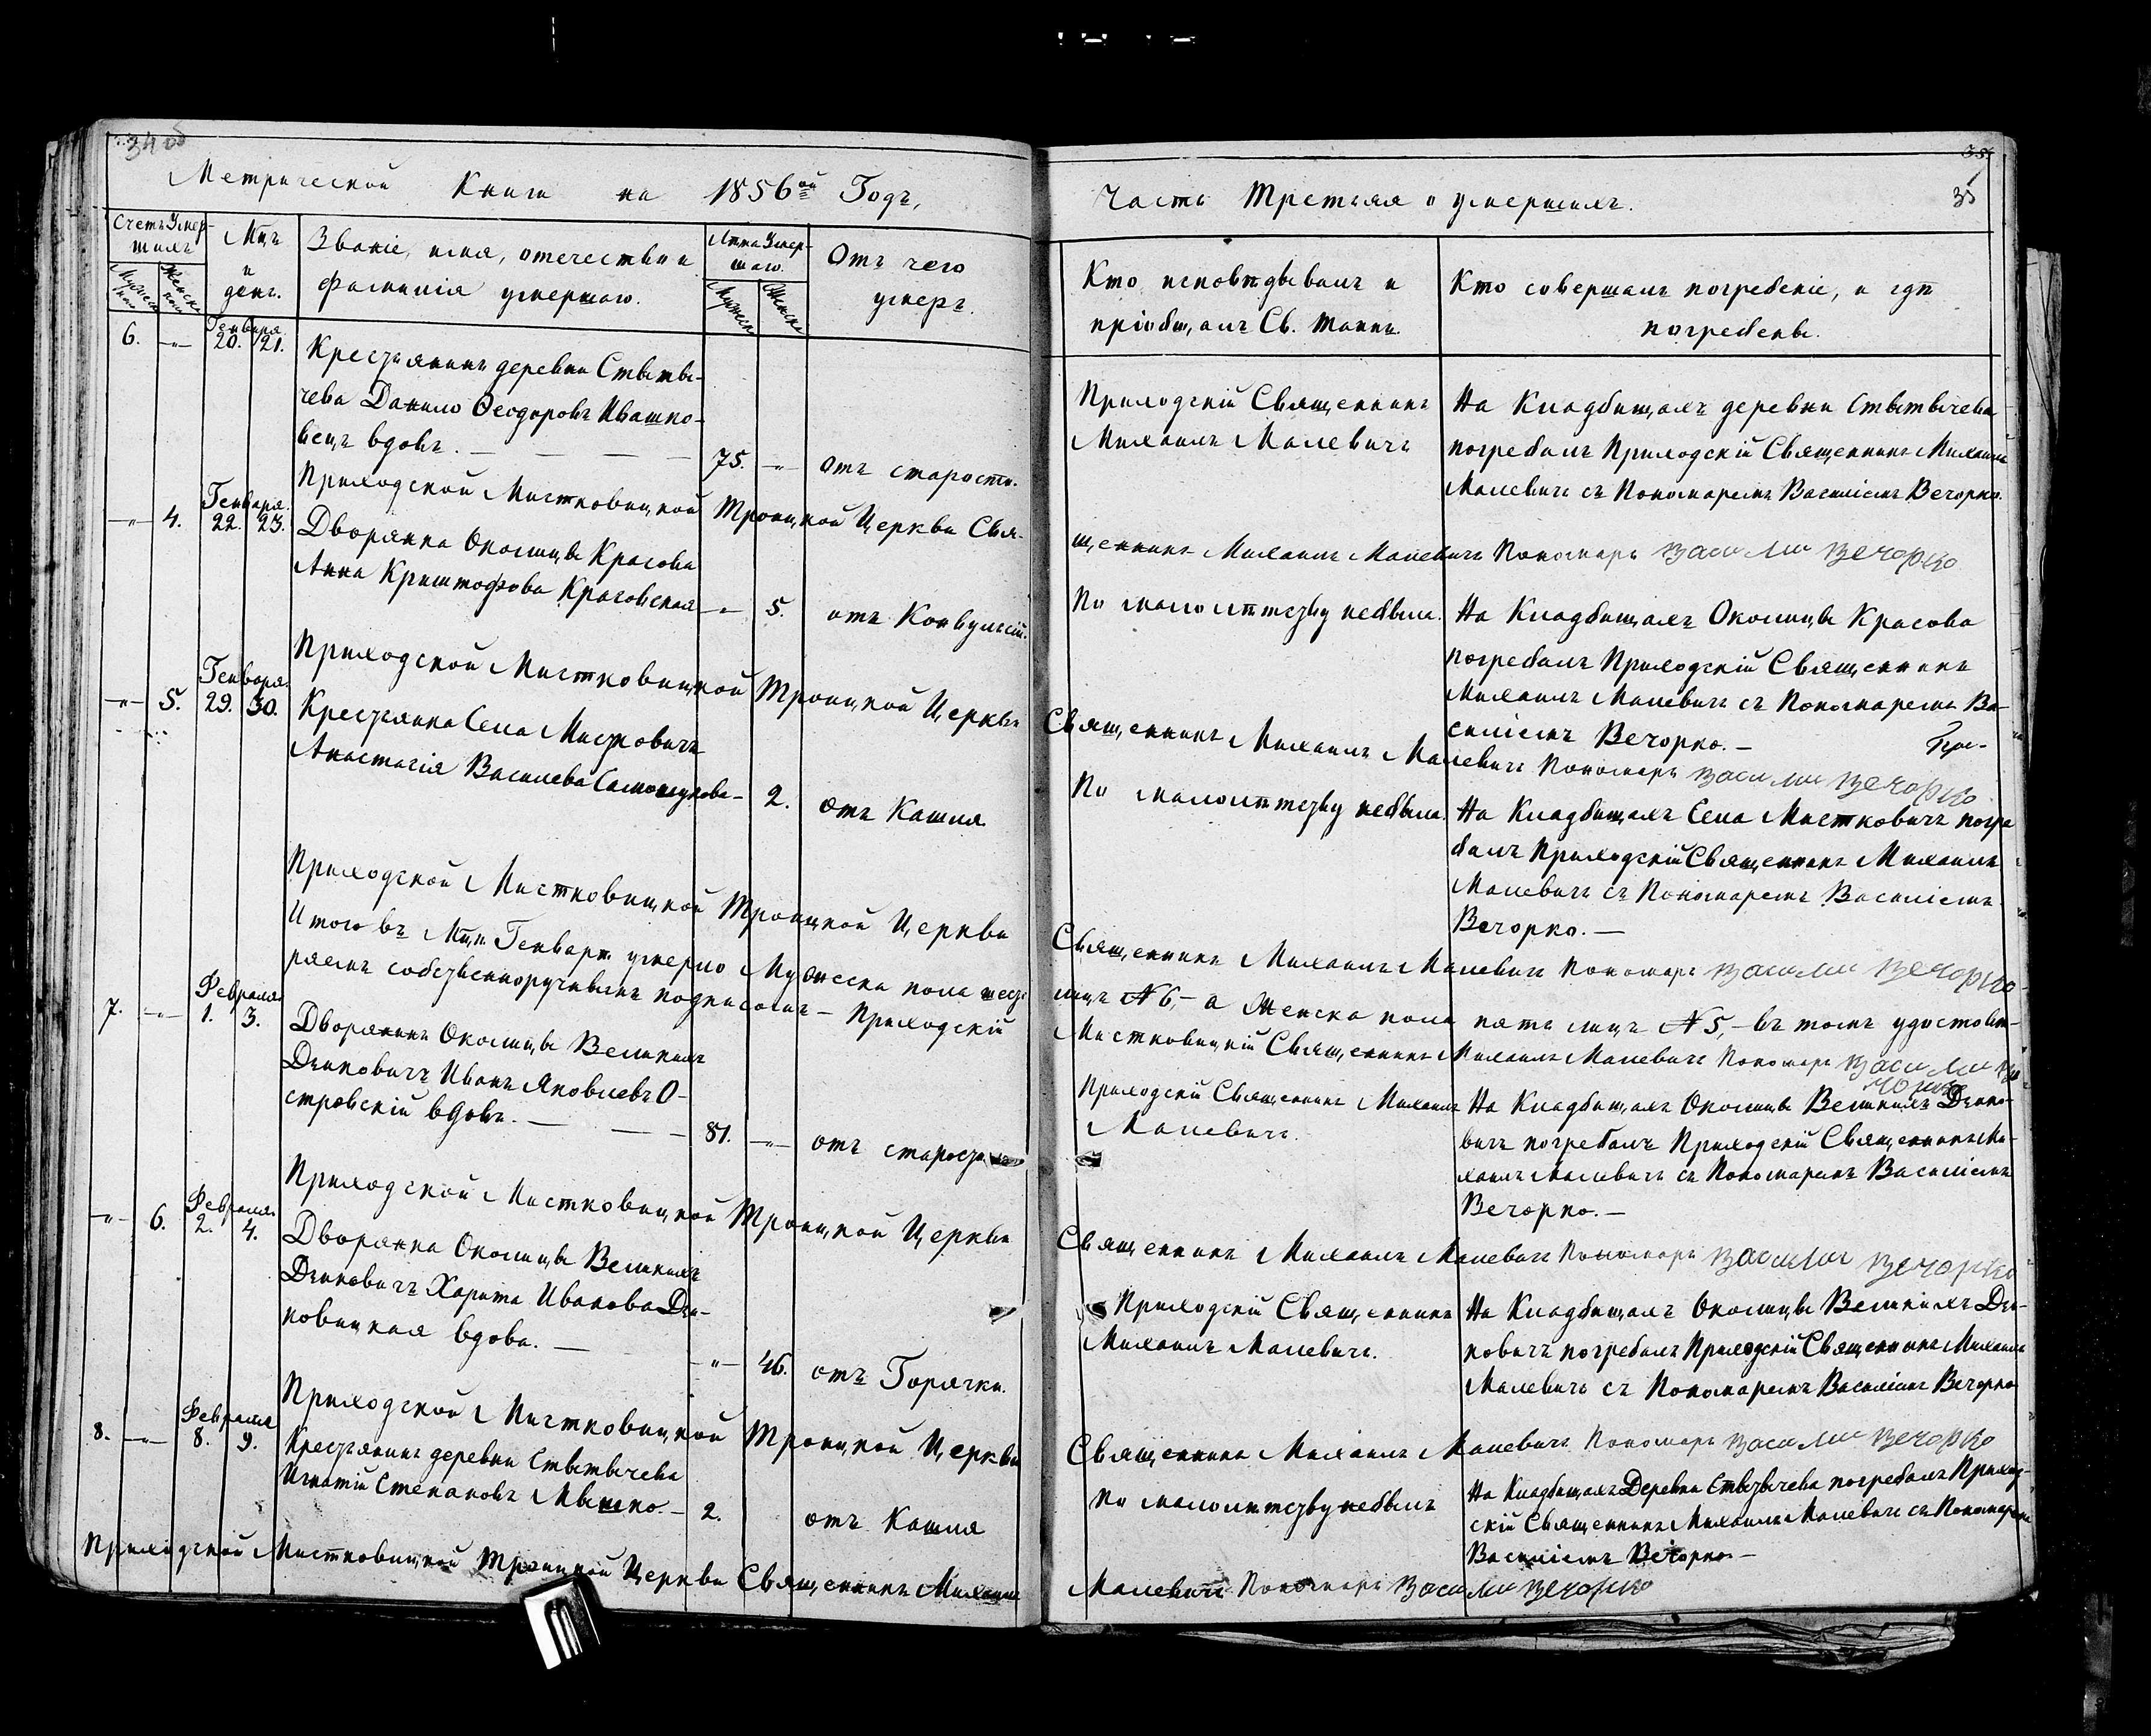 34 об
Метрической Книги на 1856ой Годъ,
Счетъ Умершихъ
Мужеска пола
Женска пола
Мцъ и день.
Званіе, имя, отечество и фамилія умершаго.
Лѣта Умершаго.
Мужеска
Женска
Отъ чего умеръ.
6. —"— Генваря 20. 21.
Крестьянинъ деревни Ствтвы-
чева Данило Ѳеодоровъ Ивашко-
вецъ вдовъ. — — — 75. —"— отъ старости.
Приходской Мистковицкой Троицкой Церкви Свя-
—"— 4. Генваря 22. 23.
Дворянка Околицы Красова
Анна Криштофова Красовская —"— 5. отъ Конвульсій.
Приходской Мистковицкой Троицкой Церкви
—"— 5. Генваря 29. 30.
Крестьянка Села Мистковичъ
Анастасія Василева Самошукова — 2. отъ Кашля
Приходской Мистковицкой Троицкой Церкви
Итого въ Мцѣ Генварѣ умерло Мужеска пола шесть
ряемъ собственноручнымъ подписомъ — Приходскій
7. —"— Февраля 1. 3.
Дворянинъ Околицы Великихъ
Дыновичъ Иванъ Яковлевъ О-
стровскій вдовъ. — — — 81. —"— отъ старости
Приходской Мистковицкой Троицкой Церкви
—"— 6. Февраля 2. 4.
Дворянка Околицы Великихъ
Дыновичъ Харита Иванова Ды-
новицкая вдова. — —"— 46. отъ Горячки.
Приходской Мистковицкой Троицкой Церкви
8. —"— Февраля 8. 9.
Крестьянинъ деревни Ствтвычева
Игнатій Степановъ Мышко. — 2. отъ Кашля
Приходской Мистковицкой Троицкой Церкви Священникъ Михаилъ
35
Часть Третяя о умершихъ.
Кто исповѣдывалъ и
пріобщалъ Св. Таинъ.
Кто совершалъ погребеніе, и гдѣ
погребены.
Приходскій Священникъ
Михаилъ Малевичъ
На Кладбищахъ деревни Ствтвычева
погребалъ Приходскій Священникъ Михаилъ
Малевичъ съ Пономаремъ Василіемъ Вечорко.
щенникъ Михаилъ Малевичъ Пономарь Васили Вечорко
По малолѣтству небыла.
На Кладбищахъ Околицы Красова
погребалъ Приходскій Священникъ
Михаилъ Малевичъ съ Пономаремъ Ва-
силіемъ Вечорко. —
Священникъ Михаилъ Малевичъ Пономарь Васили Вечорко
По малолѣтству небыла.
На Кладбищахъ Села Мистковичъ погре
балъ Приходскій Священникъ Михаилъ
Малевичъ съ Пономаремъ Василіемъ
Вечорко. —
Священникъ Михаилъ Малевичъ Пономарь Васили Вечорко
лицъ №6, — а Женска пола пять лицъ №5, — въ томъ удостовѣ-
Мистковицкій Священникъ Михаилъ Малевичъ Пономарь Васили Ве
чорко
Приходскій Священникъ Михаилъ
Малевичъ.
На Кладбищахъ Околицы Великихъ Дыно-
вичъ погребалъ Приходскій Священникъ Ми-
хаилъ Малевичъ съ Пономаремъ Василіемъ
Вечорко. —
Священникъ Михаилъ Малевичъ Пономарь Васили Вечорко
Приходскій Священникъ
Михаилъ Малевичъ.
На Кладбищахъ Околицы Великихъ Ды-
новичъ погребалъ Приходскій Священникъ Михаилъ
Малевичъ съ Пономаремъ Василіемъ Вечорко
Священникъ Михаилъ Малевичъ Пономарь Васили Вечорко
По малолѣтству небылъ
На Кладбищахъ Деревни Ствтвычева погребалъ Приход-
скій Священникъ Михаилъ Малевичъ съ Пономаремъ
Василіемъ Вечорко —
Малевичъ Пономарь Васили Вечорко